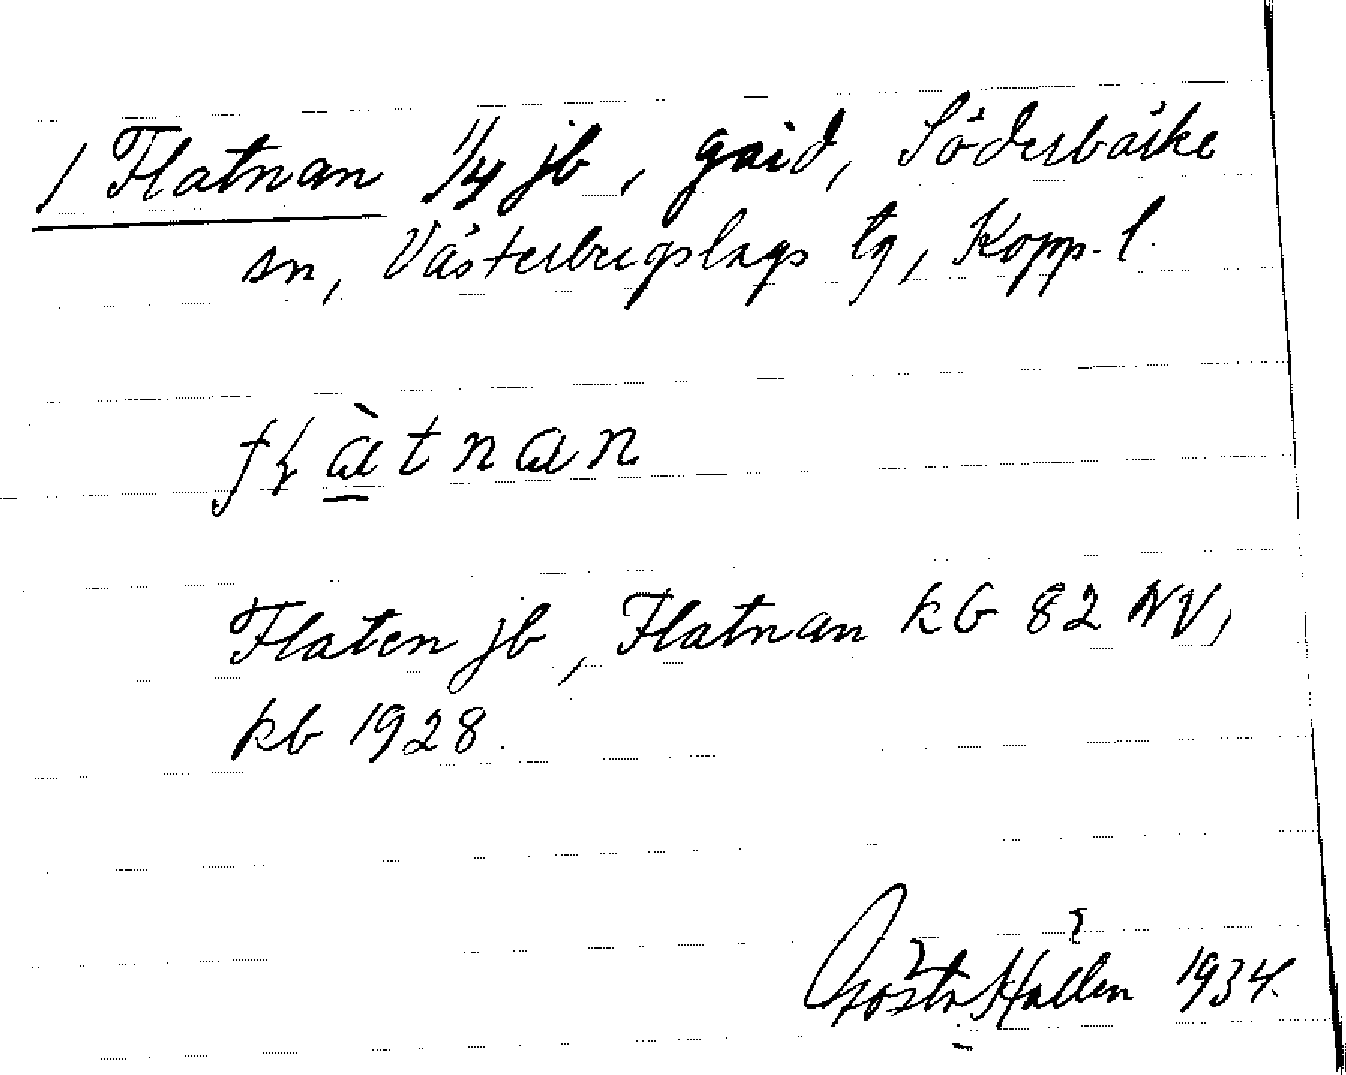 1 Flatnan 1/4 jb, gård, Söderbärke
sn, Västerbergslags tg, Kopp. l.
fɫàtnan
Flaten jb, Flatnan kb 82 NV,
kb 1928.
Gösta Hallén 1934.